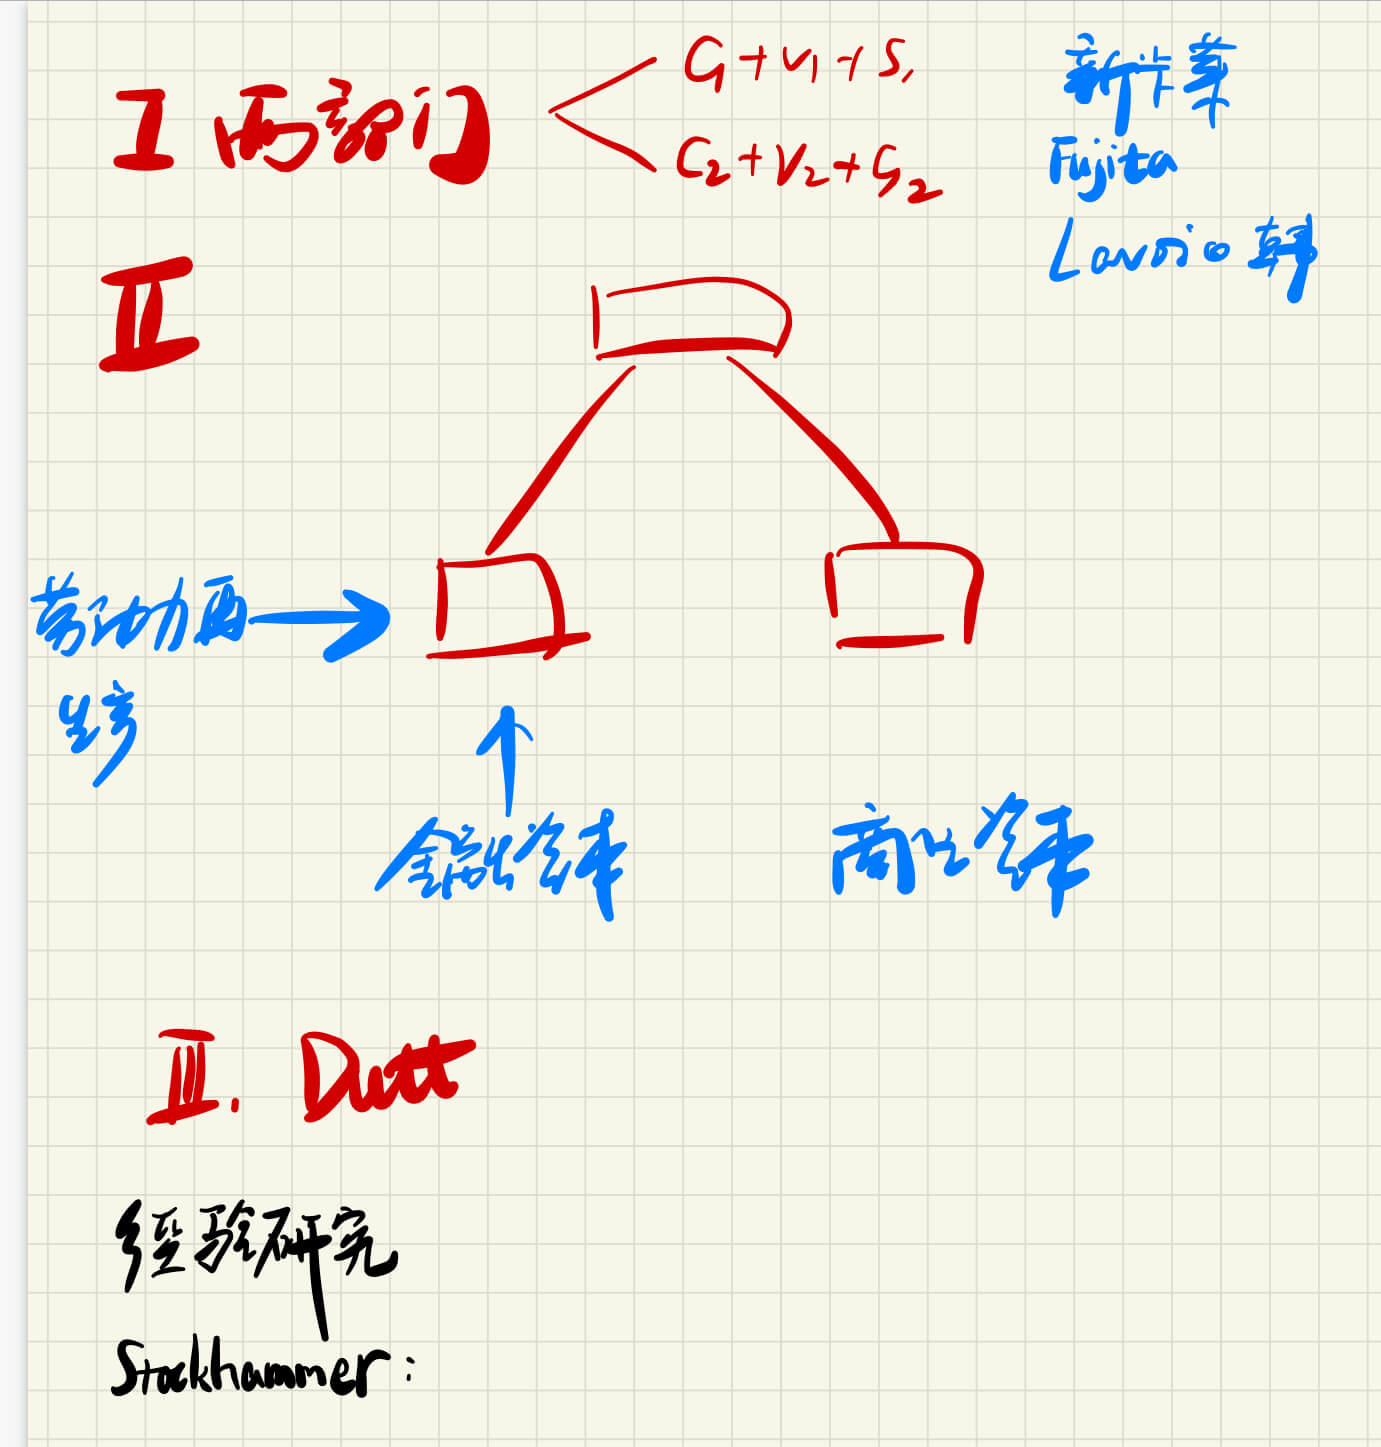 I 两部门
C1+V1+S1
C2+V2+S2
新卡莱
Fujita
Lavoie 韩
II
劳动力再
生产
金融资本
商业资本
III. Dutt
经验研究
Stockhammer: